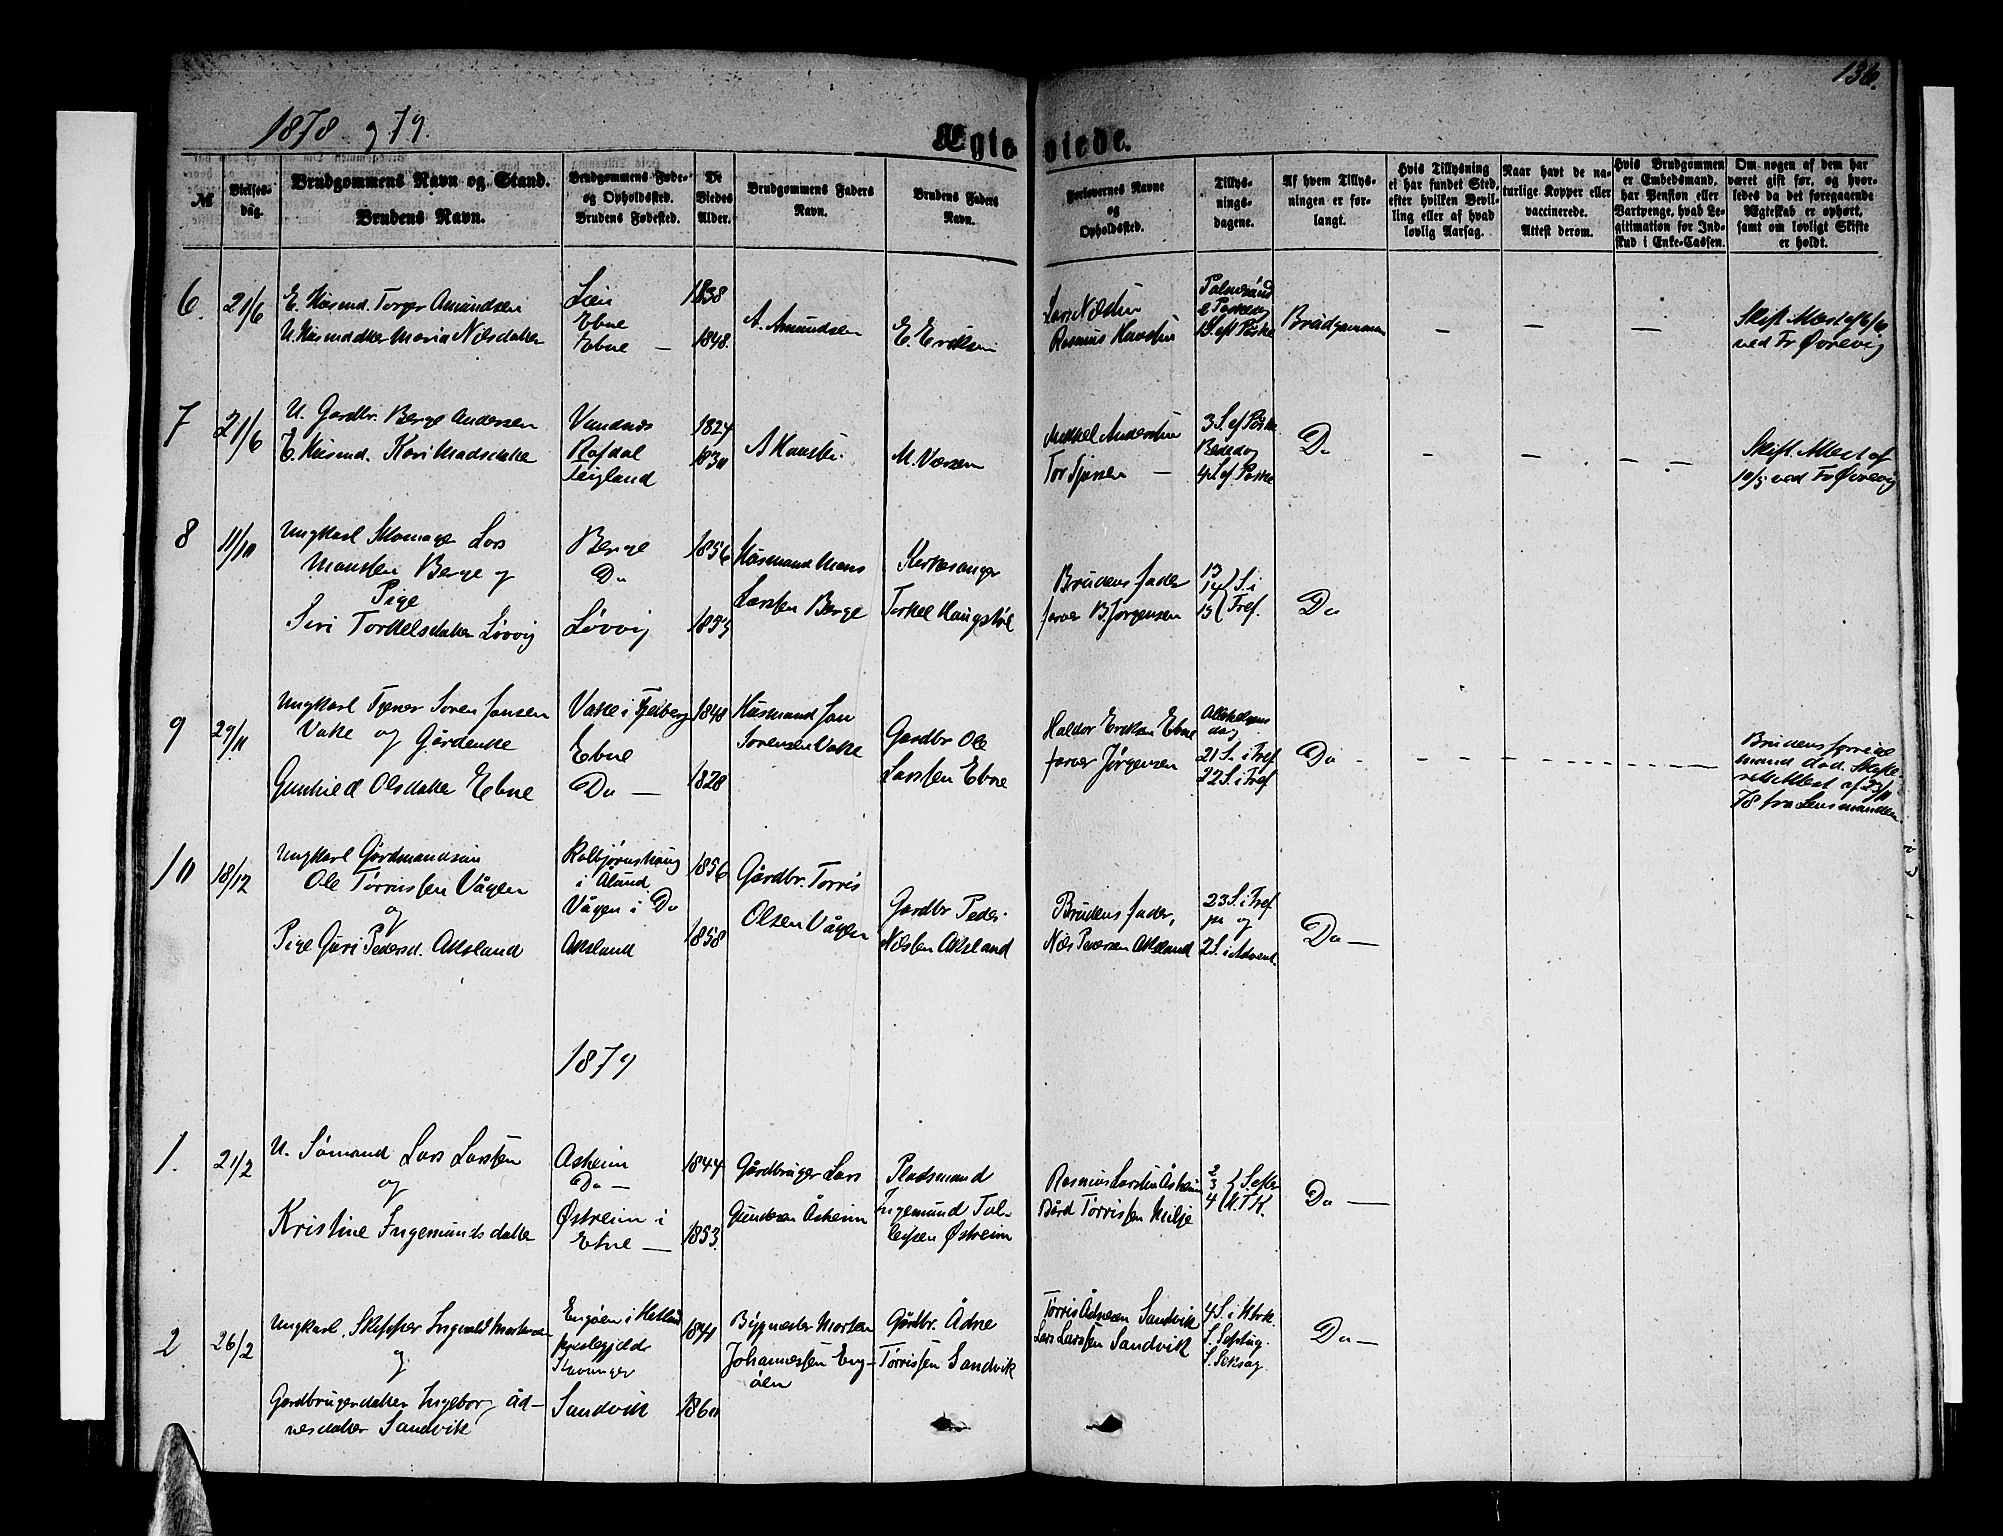 136.
1878 og 79.
Ægteviede.
№
Vielses-
dag.
Brudgommens Navn og Stand.
Brudens Navn.
Brudgommens Føde-
og Opholdssted.
Brudens Fødested.
De
Viedes
Alder.
Brudgommens Faders
Navn.
Brudens Faders
Navn.
Forlovernes Navne
og
Opholdssted.
Tillys-
nings-
dagene.
Af hvem Tillys-
ningen er for-
langt.
Hvis Tillysning
ei har fundet Sted,
efter hvilken Bevil-
ling eller af hvad
lovlig Aarsag.
Naar havt de na-
turlige Kopper eller
vaccinerede.
Attest derom.
Hvis Brudgommen
er Embedsmand,
har Pension eller
Vartpenge, hvad Le-
gitimation for Ind-
skud i Enke-Cassen.
Om nogen af dem har
været gift før, og hvor-
ledes da det foregaaende
Ægteskab er ophørt,
samt om lovligt Skifte
er holdt.
6.
21/6
E. Husmd. Torger Amundsen
U. Husmddtter Maria Nilsdatter
Lien
Ebne
Ebne —
1838
1848.
A. Amundsen
E. Eriksen
Lars Nilsen
Rasmus Hansen
Palmesønd
2 Paaskedag
1 S. eft Påske
Brudgommen
Skift. Attest af 6/6
ved Fr Øvrevig
7
21/6
U. Gardbr. Berge Andersen
E. Husmd. Kari Madsdatter
Vandnes
Rafdal
Teigland
1824
1830
A Hansen
M. Vaersen
Mikkel Andersen
Tor Sjursen —
3 S. ef Påske
Bededag
4 S. ef. Påske
Do
Skift. Attest af
10/5 ved Fr Øvrevig
8
11/10
Ungkarl Skomager Lars
Monsen Berge og
Pige
Siri Torkelsdatter Løvvig
Berge
Do
Løvvig
1856
1853
Husmand Mons
Larsen Berge
Kirkesanger
Torkel Haugstøl
Brudens fader
farver B. Jørgensen
13
14 S. i
15 Tref.
Do
9
29/11
Ungkarl Tjener Soren Jansen
Vake og Gårdenke
Gunhild Olsdatter Ebne
Vake i Fjelberg
Ebne
Do —
1848
1828
Husmand Jan
Sorensen Vake
Gardbr Ole
Larsen Ebne
Haldor Eriksen Ebne
farver Jørgensen
Allehelgens
dag
21 S. i Tref
22 S. i Tref
Do
Brudens forrige
mand død. Skifte-
retsattest af 23/11
78 fra Lensmanden.
10
18/12
Ungkarl Gårdmandssøn
Ole Tørrissen Vågen
og
Pige Guri Pedersd. Aksland
Kolbjørnshaug
i Ølund
Vågen i Do
Aksland
1856
1858
Gårdbr. Torris
Olsen Vågen
Gardbr Peder
Nilsen Aksland
Brudens fader,
Nils Pedersen Aksland
23 S. i Tref
og
2 S. i Advent.
Do —
1879
1.
21/2
U. Sømand Lars Larsen
og
Kristine Ingemundsdatter
Asheim
Do —
Østreim i
Ebne —
1844
1853.
Gårdbruger Lars
Gundersen Åsheim
Pladsmand
Ingemund Tol-
leifsen Østreim
Rasmus Larsen Åsheim
Bård Tørrissen Milje
2
3 S. efter
4 H.T.K.
Do —
2
26/2
Ungkarl. Skipper Ingvald Mortensen
og
Gardbrugerdatter Ingeborg Åd-
nesdatter Sandvik
Engøen i Hetland
prestegjeld
Stavanger
Sandvik
1841
1860
Bygmester Morten
Johannessen Eng-
øen
Gårdbr. Ådne
Tørrissen Sandvik
Tørris Ådnesen Sandvik
Lars Larssen Sandvik
4 S. i
S. Septuag.
S. Seksag.
Do —